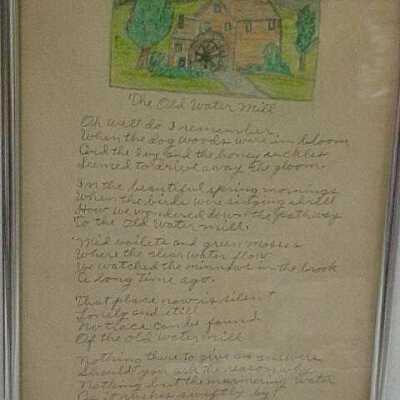 "The Old Water Mill
Oh well do I remember
When the dog woods were in bloom
And the ivy and the honey suckles
Seemed to drive away the gloom.
In the beautiful spring mornings
When the birds were singing shrill
How we wondered down the pathway
To the Old Water mill.
Mid voilets and green mosses
Where the clear water flow
We watched the minnows in the brook
A long time ago.
That place now is silent
Lonely and still
No trace can be found
Of the old water mill
Nothing there to give an answer
Should you ask the reason why
Nothing but the murmuring water
As it rushes swiftly by!